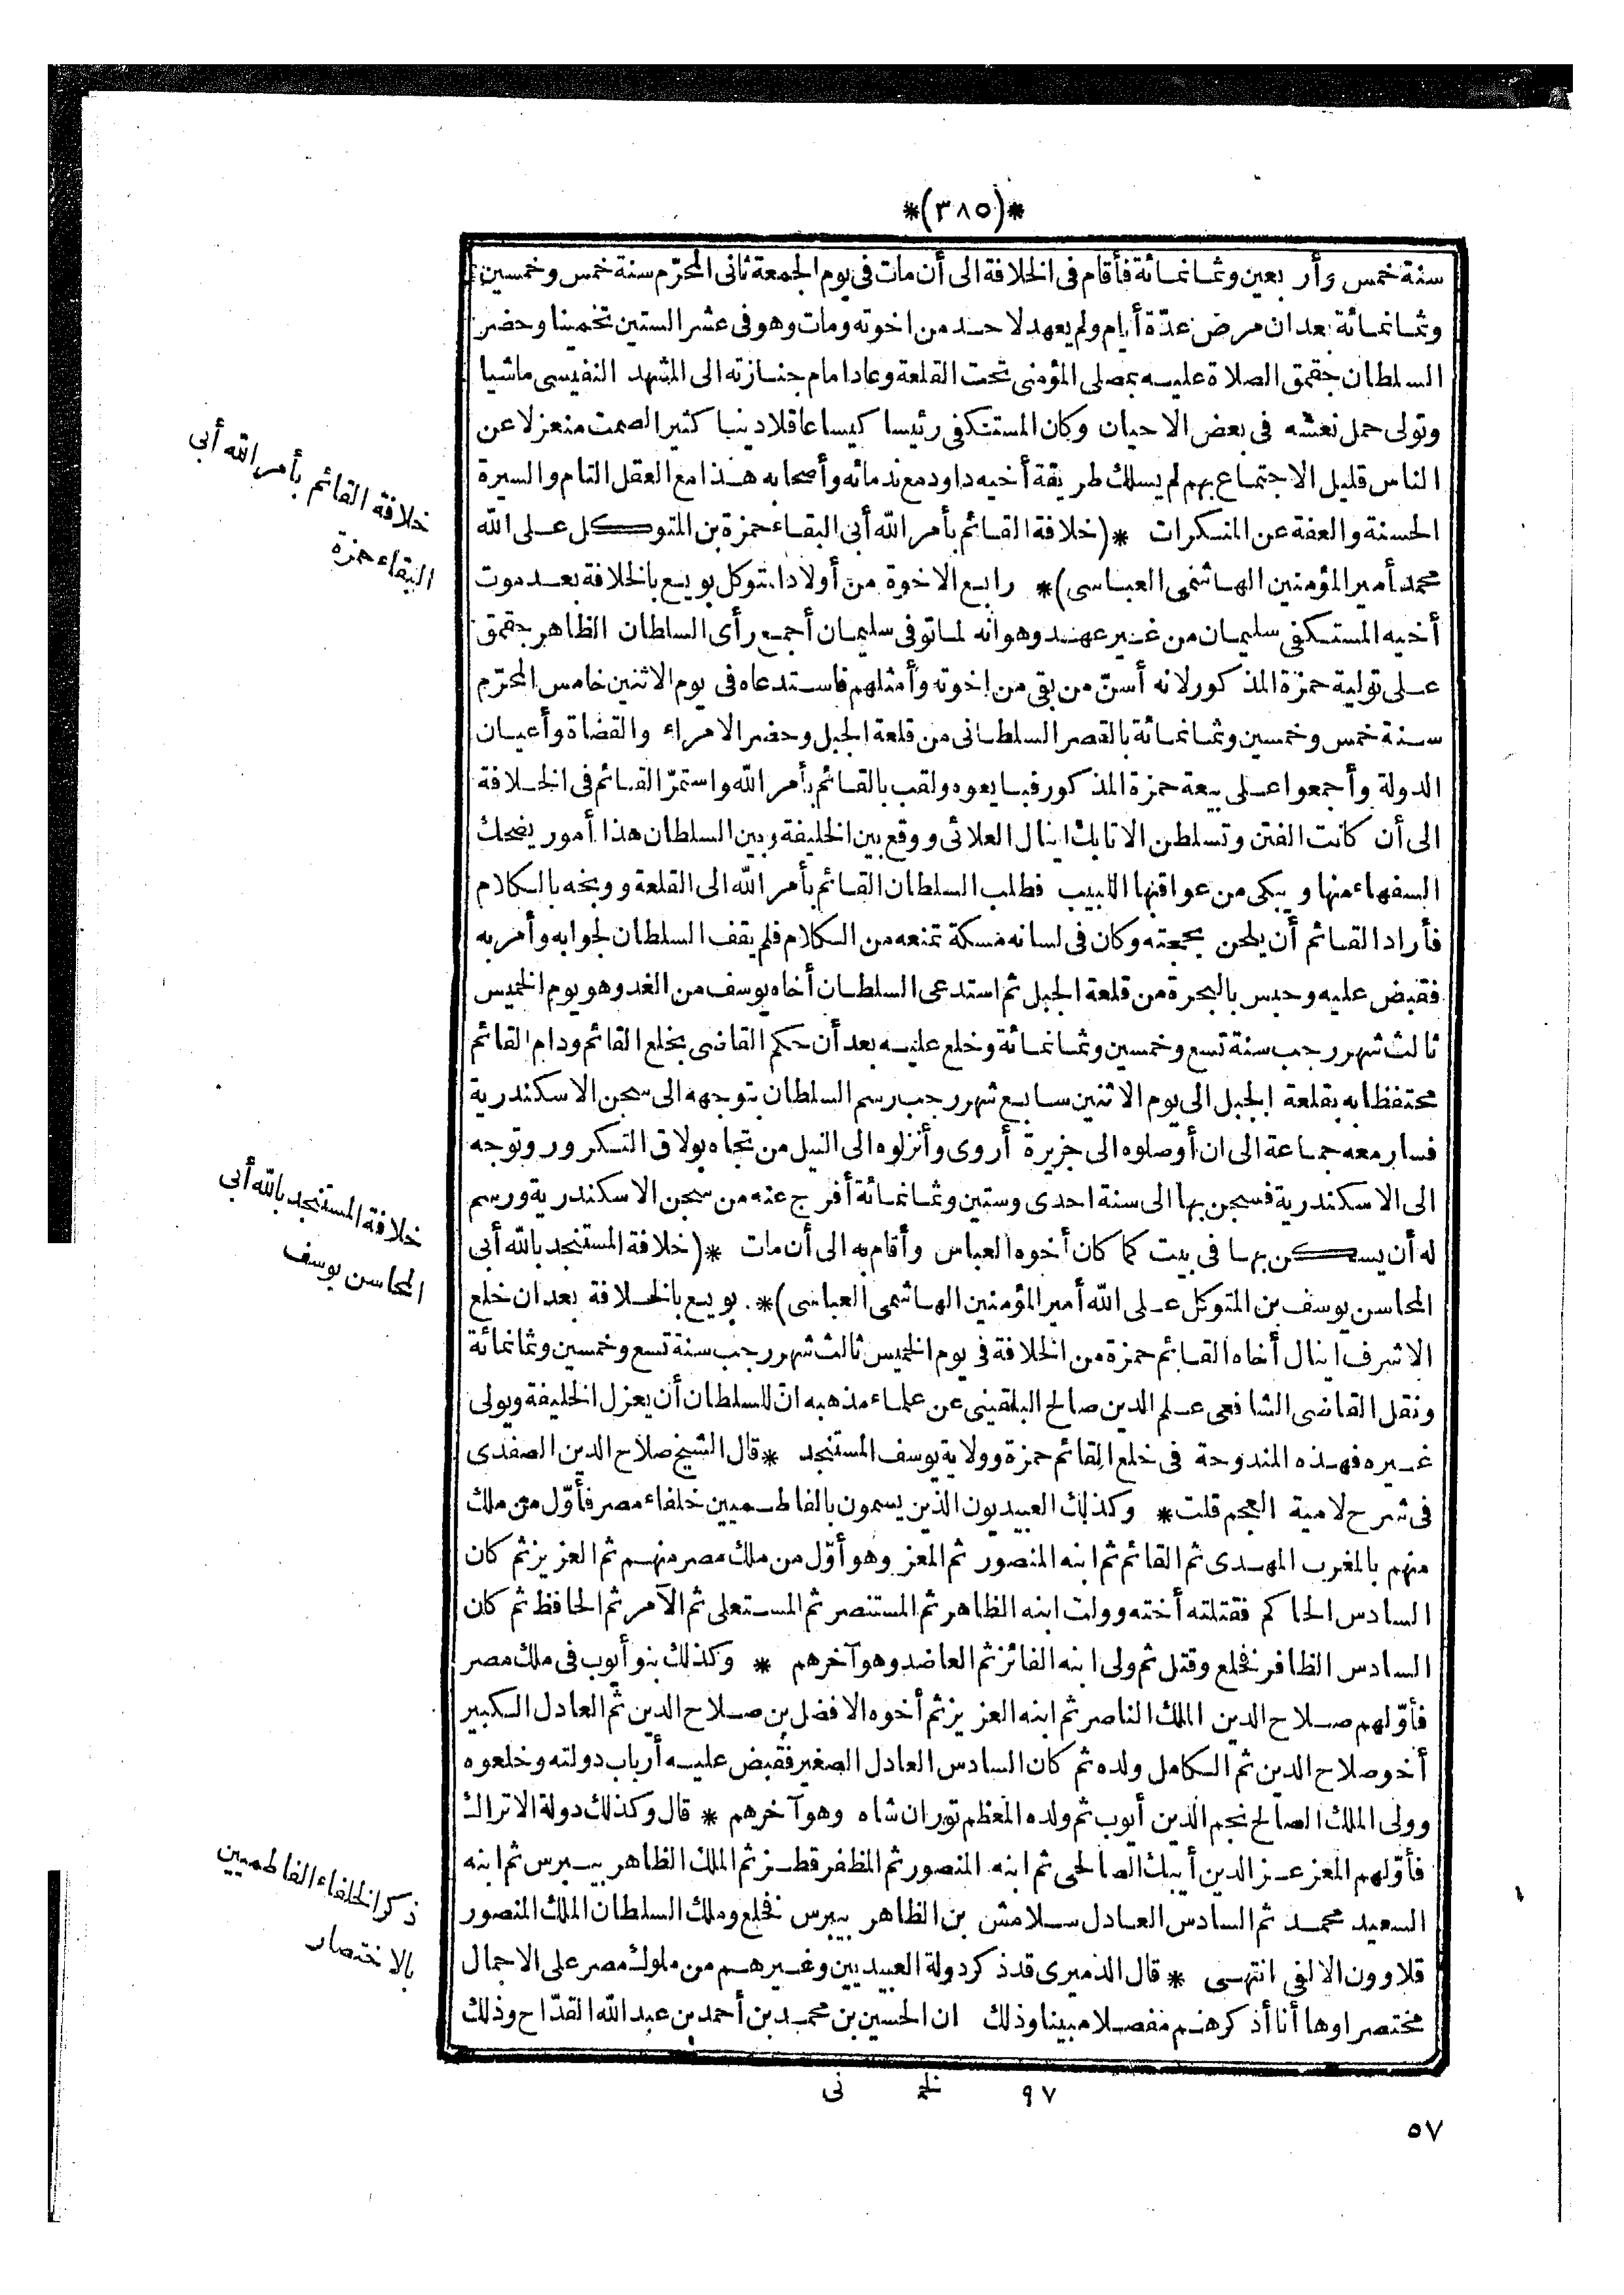 *(٣٨٥)*
سنة خمس وأربعين وثمانمائة فأقام فى الخلافة الى أن مات فى يوم الجمعة ثانى المحرّم سنة خمس وخمسين
وثمانمائة بعد ان مرض عدّة أيام ولم يعهد لاحد من اخوته ومات وهو فى عشر الستين تخمينا وحضر
السلطان جقمق الصلاة عليه بمصلى المؤمنى تحت القلعة وعاد امام جنازته الى المشهد النفيسى ماشيا
وتولى حمل نعشه فى بعض الاحيان وكان المستكفى رئيسا كيسا عاقلا دينا كثير الصمت منعزلا عن
الناس قليل الاجتماع بهم لم يسلك طريقة أخيه داود مع ندمائه وأصحابه هذا مع العقل التام والسيرة
الحسنة والعفة عن المنكرات *(خلافة القائم بأمر الله أبى البقاء حمزة بن المتوكل على الله
محمد أمير المؤمنين الهاشمى العباسى)* رابع الاخوة من أولاد المتوكل بويع بالخلافة بعد موت
أخيه المستكفى سليمان من غير عهد وهو انه لما توفى سليمان أجمع رأى السلطان الظاهر جقمق
على تولية حمزة المذكور لانه أسنّ من بقى من إخوته وأمثلهم فاستدعاه فى يوم الاثنين خامس المحرّم
سنة خمس وخمسين وثمانمائة بالقصر السلطانى من قلعة الجبل وحضر الامراء والقضاة وأعيان
الدولة وأجمعوا على بيعة حمزة المذكور فبايعوه ولقب بالقائم بأمر الله واستمرّ القائم فى الخلافة
الى أن كانت الفتن وتسلطن الاتابك اينال العلائى ووقع بين الخليفة وبين السلطان هذا أمور يضحك
السفهاء منها ويبكى من عواقبها اللبيب فطلب السلطان القائم بأمر الله الى القلعة ووبخه بالكلام
فأراد القائم أن يلحن بحجته وكان فى لسانه مسكة تمنعه من الكلام فلم يقف السلطان لجوابه وأمر به
فقبض عليه وحبس بالبحرة من قلعة الجبل ثم استدعى السلطان أخاه يوسف من الغد وهو يوم الخميس
ثالث شهر رجب سنة تسع وخمسين وثمانمائة وخلع عليه بعد أن حكم القاضى بخلع القائم ودام القائم
محتفظا به بقلعة الجبل الى يوم الاثنين سابع شهر رجب رسم السلطان بتوجهه الى سجن الاسكندرية
فسار معه جماعة الى ان أوصلوه الى جزيرة أروى وأنزلوه الى النيل من تجاه بولاق التكرور وتوجه
الى الاسكندرية فسجن بها الى سنة احدى وستين وثمانمائة أفرج عنه من سجن الاسكندرية ورسم
له أن يسكن بها فى بيت كما كان أخوه العباس وأقام به الى أن مات *(خلافة المستنجد بالله أبى
المحاسن يوسف بن المتوكل على الله أمير المؤمنين الهاشمى العباسى)* بويع بالخلافة بعد ان خلع
الاشرف اينال أخاه القائم حمزة من الخلافة فى يوم الخميس ثالث شهر رجب سنة تسع وخمسين وثمانمائة
ونقل القاضى الشافعى علم الدين صالح البلقينى عن علماء مذهبه انّ للسلطان أن يعزل الخليفة ويولى
غيره فهذه المندوحة فى خلع القائم حمزة وولاية يوسف المستنجد *قال الشيخ صلاح الدين الصفدى
فى شرح لامية العجم قلت* وكذلك العبيديون الذين يسمون بالفاطميين خلفاء مصر فأوّل من ملك
منهم بالمغرب المهدى ثم القائم ثم ابنه المنصور ثم المعز وهو أوّل من ملك مصر منهم ثم العزيز ثم كان
السادس الحاكم فقتلته أخته وولت ابنه الظاهر ثم المستنصر ثم المستعلى ثم الآمر ثم الحافظ ثم كان
السادس الظافر فخلع وقتل ثم ولى ابنه الفائز ثم العاضد وهو آخرهم * وكذلك بنو أيوب فى ملك مصر
فأوّلهم صلاح الدين الملك الناصر ثم ابنه العزيز ثم أخوه الافضل بن صلاح الدين ثم العادل الكبير
أخو صلاح الدين ثم الكامل ولده ثم كان السادس العادل الصغير فقبض عليه أرباب دولته وخلعوه
وولى الملك الصالح نجم الدين أيوب ثم ولده المعظم توران شاه وهو آخرهم * قال وكذلك دولة الاتراك
فأوّلهم المعز عز الدين أيبك الصالحى ثم ابنه المنصور ثم المظفر قطز ثم الملك الظاهر بيبرس ثم ابنه
السعيد محمد ثم السادس العادل سلامش بن الظاهر بيبرس فخلع وملك السلطان الملك المنصور
قلاوون الالفى انتهى * قال الدميرى قد ذكر دولة العبيديين وغيرهم من ملوك مصر على الاجمال
مختصرا وها أنا أذكرهم مفصلا مبينا وذلك ان الحسين بن محمد بن أحمد بن عبد الله القدّاح وذلك
خلافة القائم بأمر الله أبى
البقاء حمزة
خلافة المستنجد بالله أبى
المحاسن يوسف
ذكر الخلفاء الفاطميين
بالاختصار
٩٧ نى
٥٧